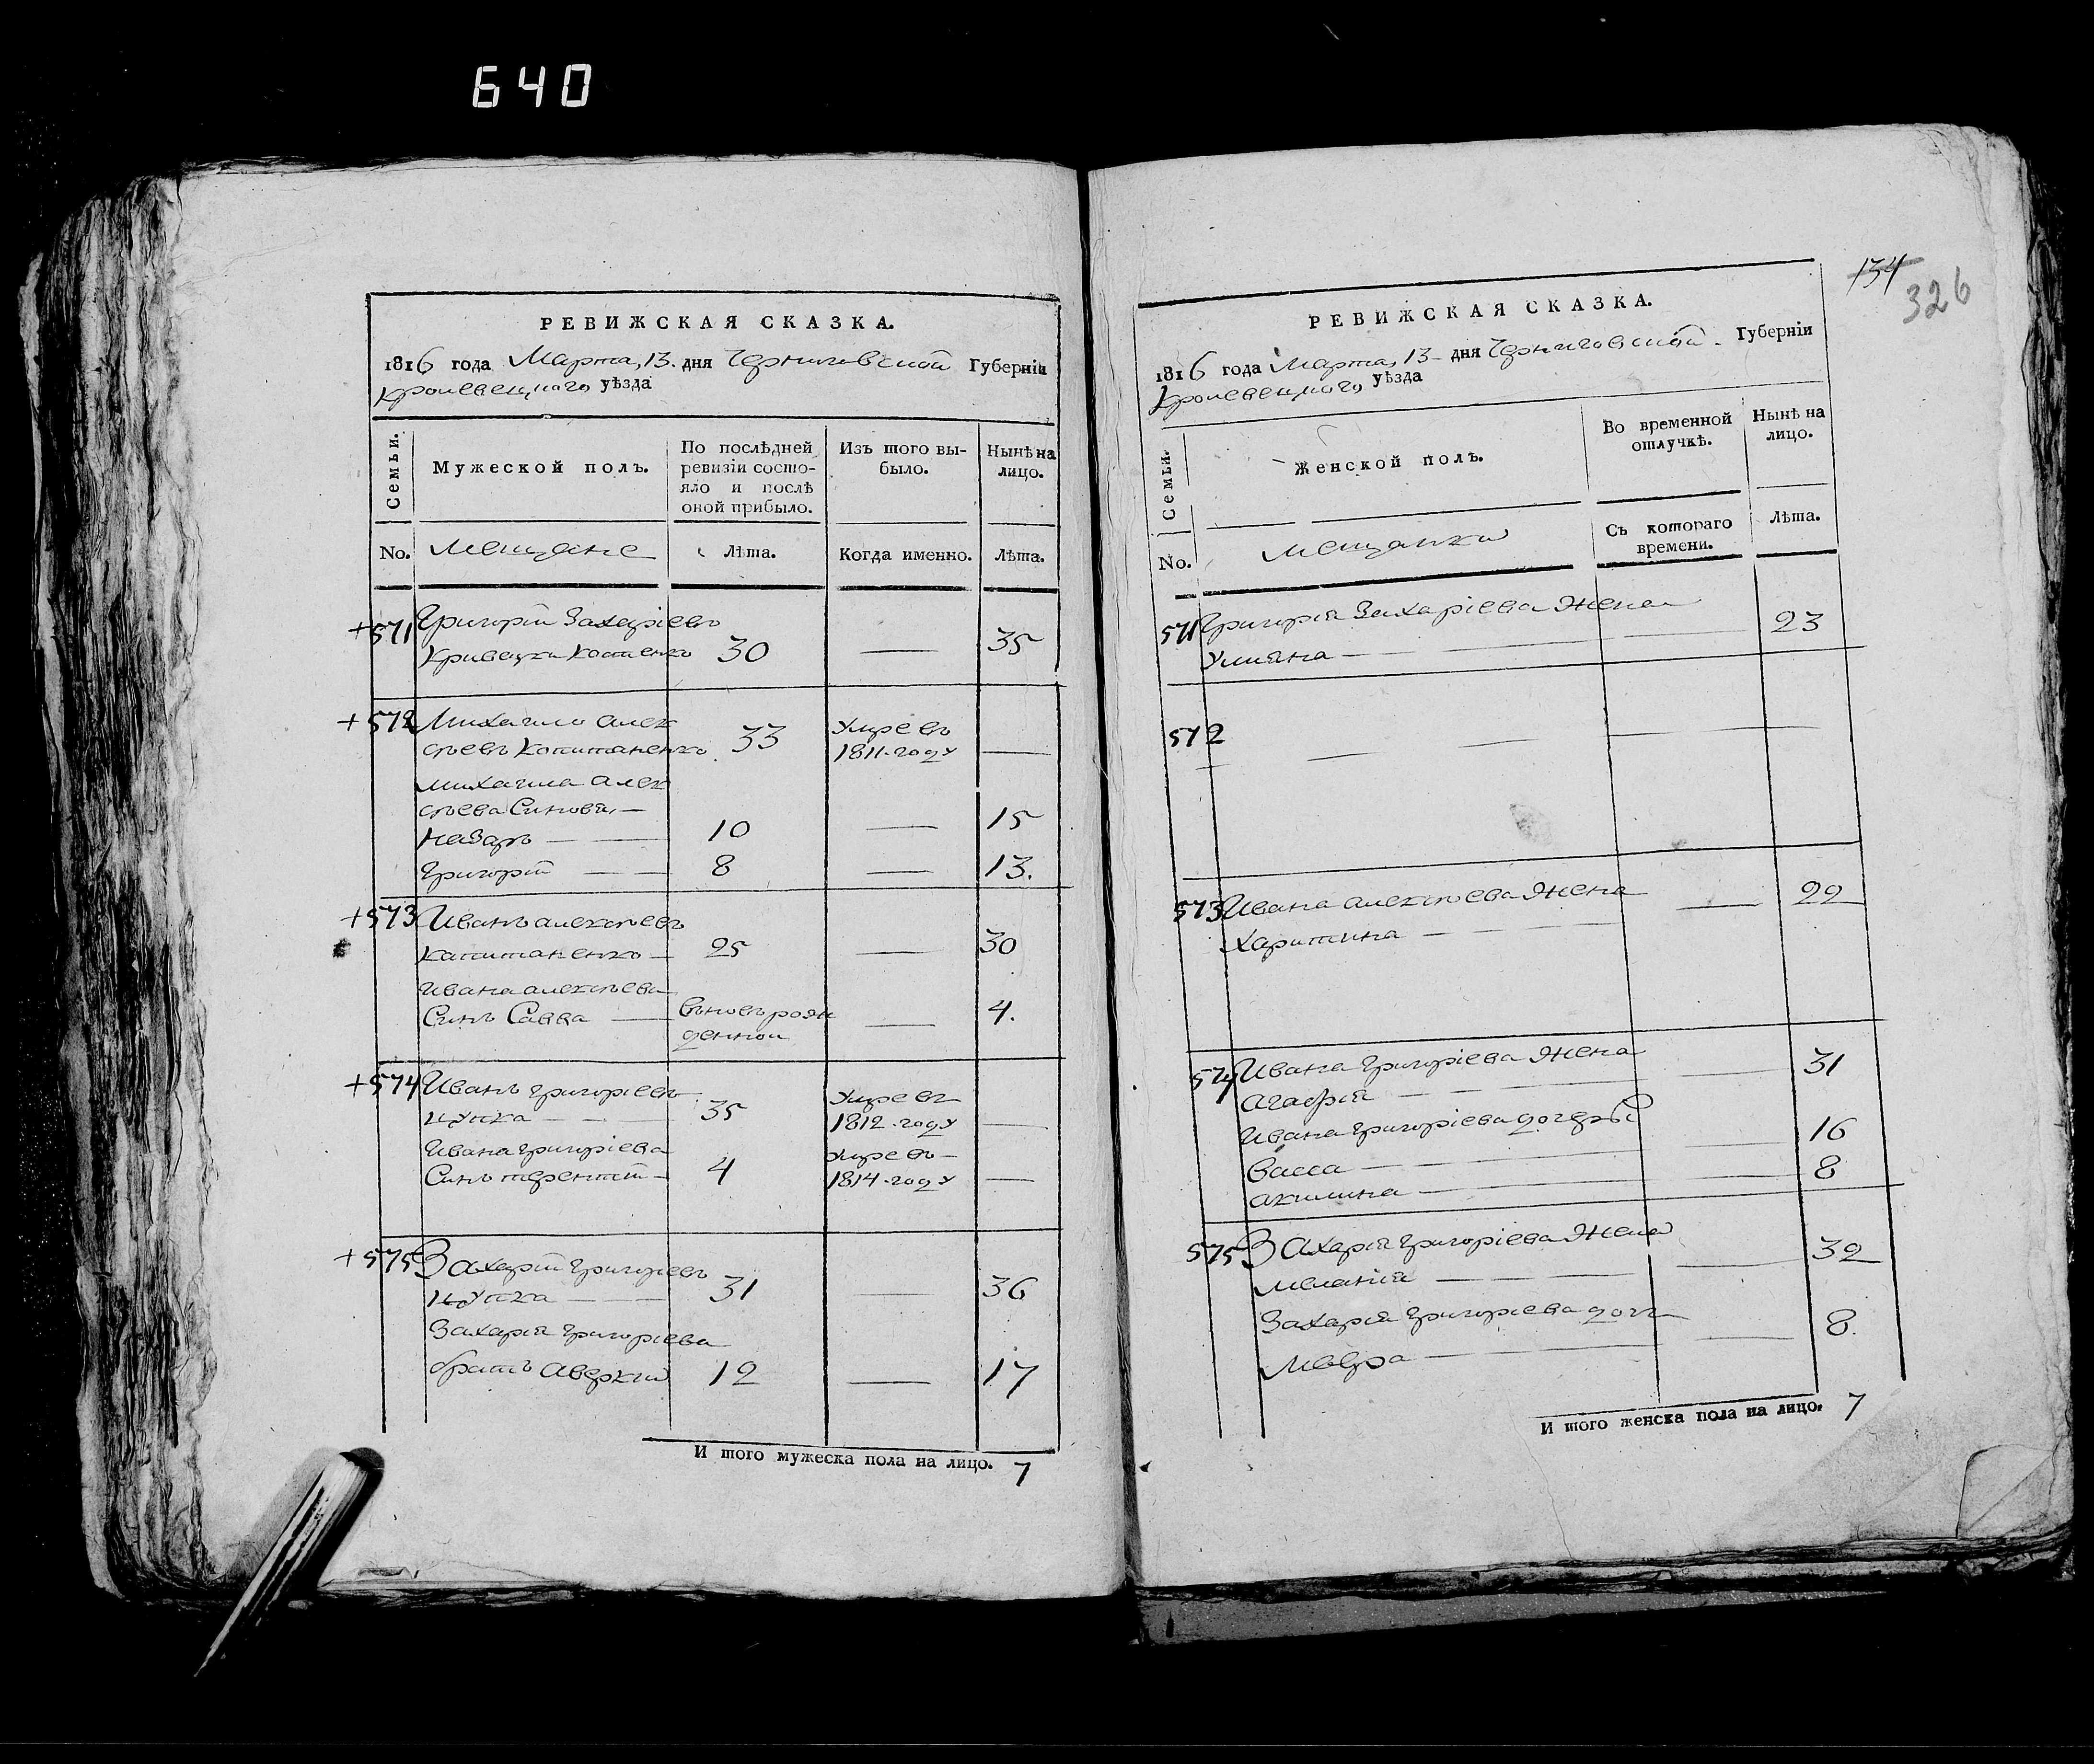 640
РЕВИЖСКАЯ СКАЗКА.
1816 года Марта, 13. дня Черниговской Губерніи
Кролевецкого уѣзда
Семьи.
Мужеской полъ.
По послѣдней
ревизіи состо-
яло и послѣ
оной прибыло.
Изъ того вы-
было.
Нынѣ на
лицо.
No. мещане
Лѣта.
Когда именно.
Лѣта.
+571 Григорій Захаріевъ
30 — 35
+572 Михаило Алек
сѣевъ Капитаненко 33 умре въ
1811 году —
Михаила Алек
сѣева Синовя, —
Назаръ — 10 — 15
Григорій — 8 — 13.
+573 Иванъ Алексѣевъ
Капитаненко — 25 — 30
Ивана Алексѣева
Синъ Савва — вновь рож
денной — 4.
+574 Иванъ Григоріевъ
35 умре въ
1812 году —
Ивана Григоріева
Синъ Терентій — 4 умре въ
1814 году —
+575 Захарій Григоріевъ
31 — 36
Захарія Григоріева
братъ Аверкий 12 — 17
И того мужеска пола на лицо. 7
134
326
РЕВИЖСКАЯ СКАЗКА.
1816 года Марта, 13 дня Черниговской Губерніи
Кролевецкого уѣзда
Семьи.
Женской полъ.
Во временной
отлучкѣ.
Нынѣ на
лицо.
No. мещанки
Съ котораго
времени.
Лѣта.
571 Григорія Захаріева Жена
Улияна — 23
572 —
573 Ивана Алексѣева Жена
Харитина — 22
574 Ивана Григоріева Жена
Агафія — 31
Ивана Григоріева дочери
Васса — 16
Акилина — 8
575 Захарія Григоріева Жена
Меланія — 32
Захарія Григоріева дочь
Мавра — 8.
И того женска пола на лицо. 7